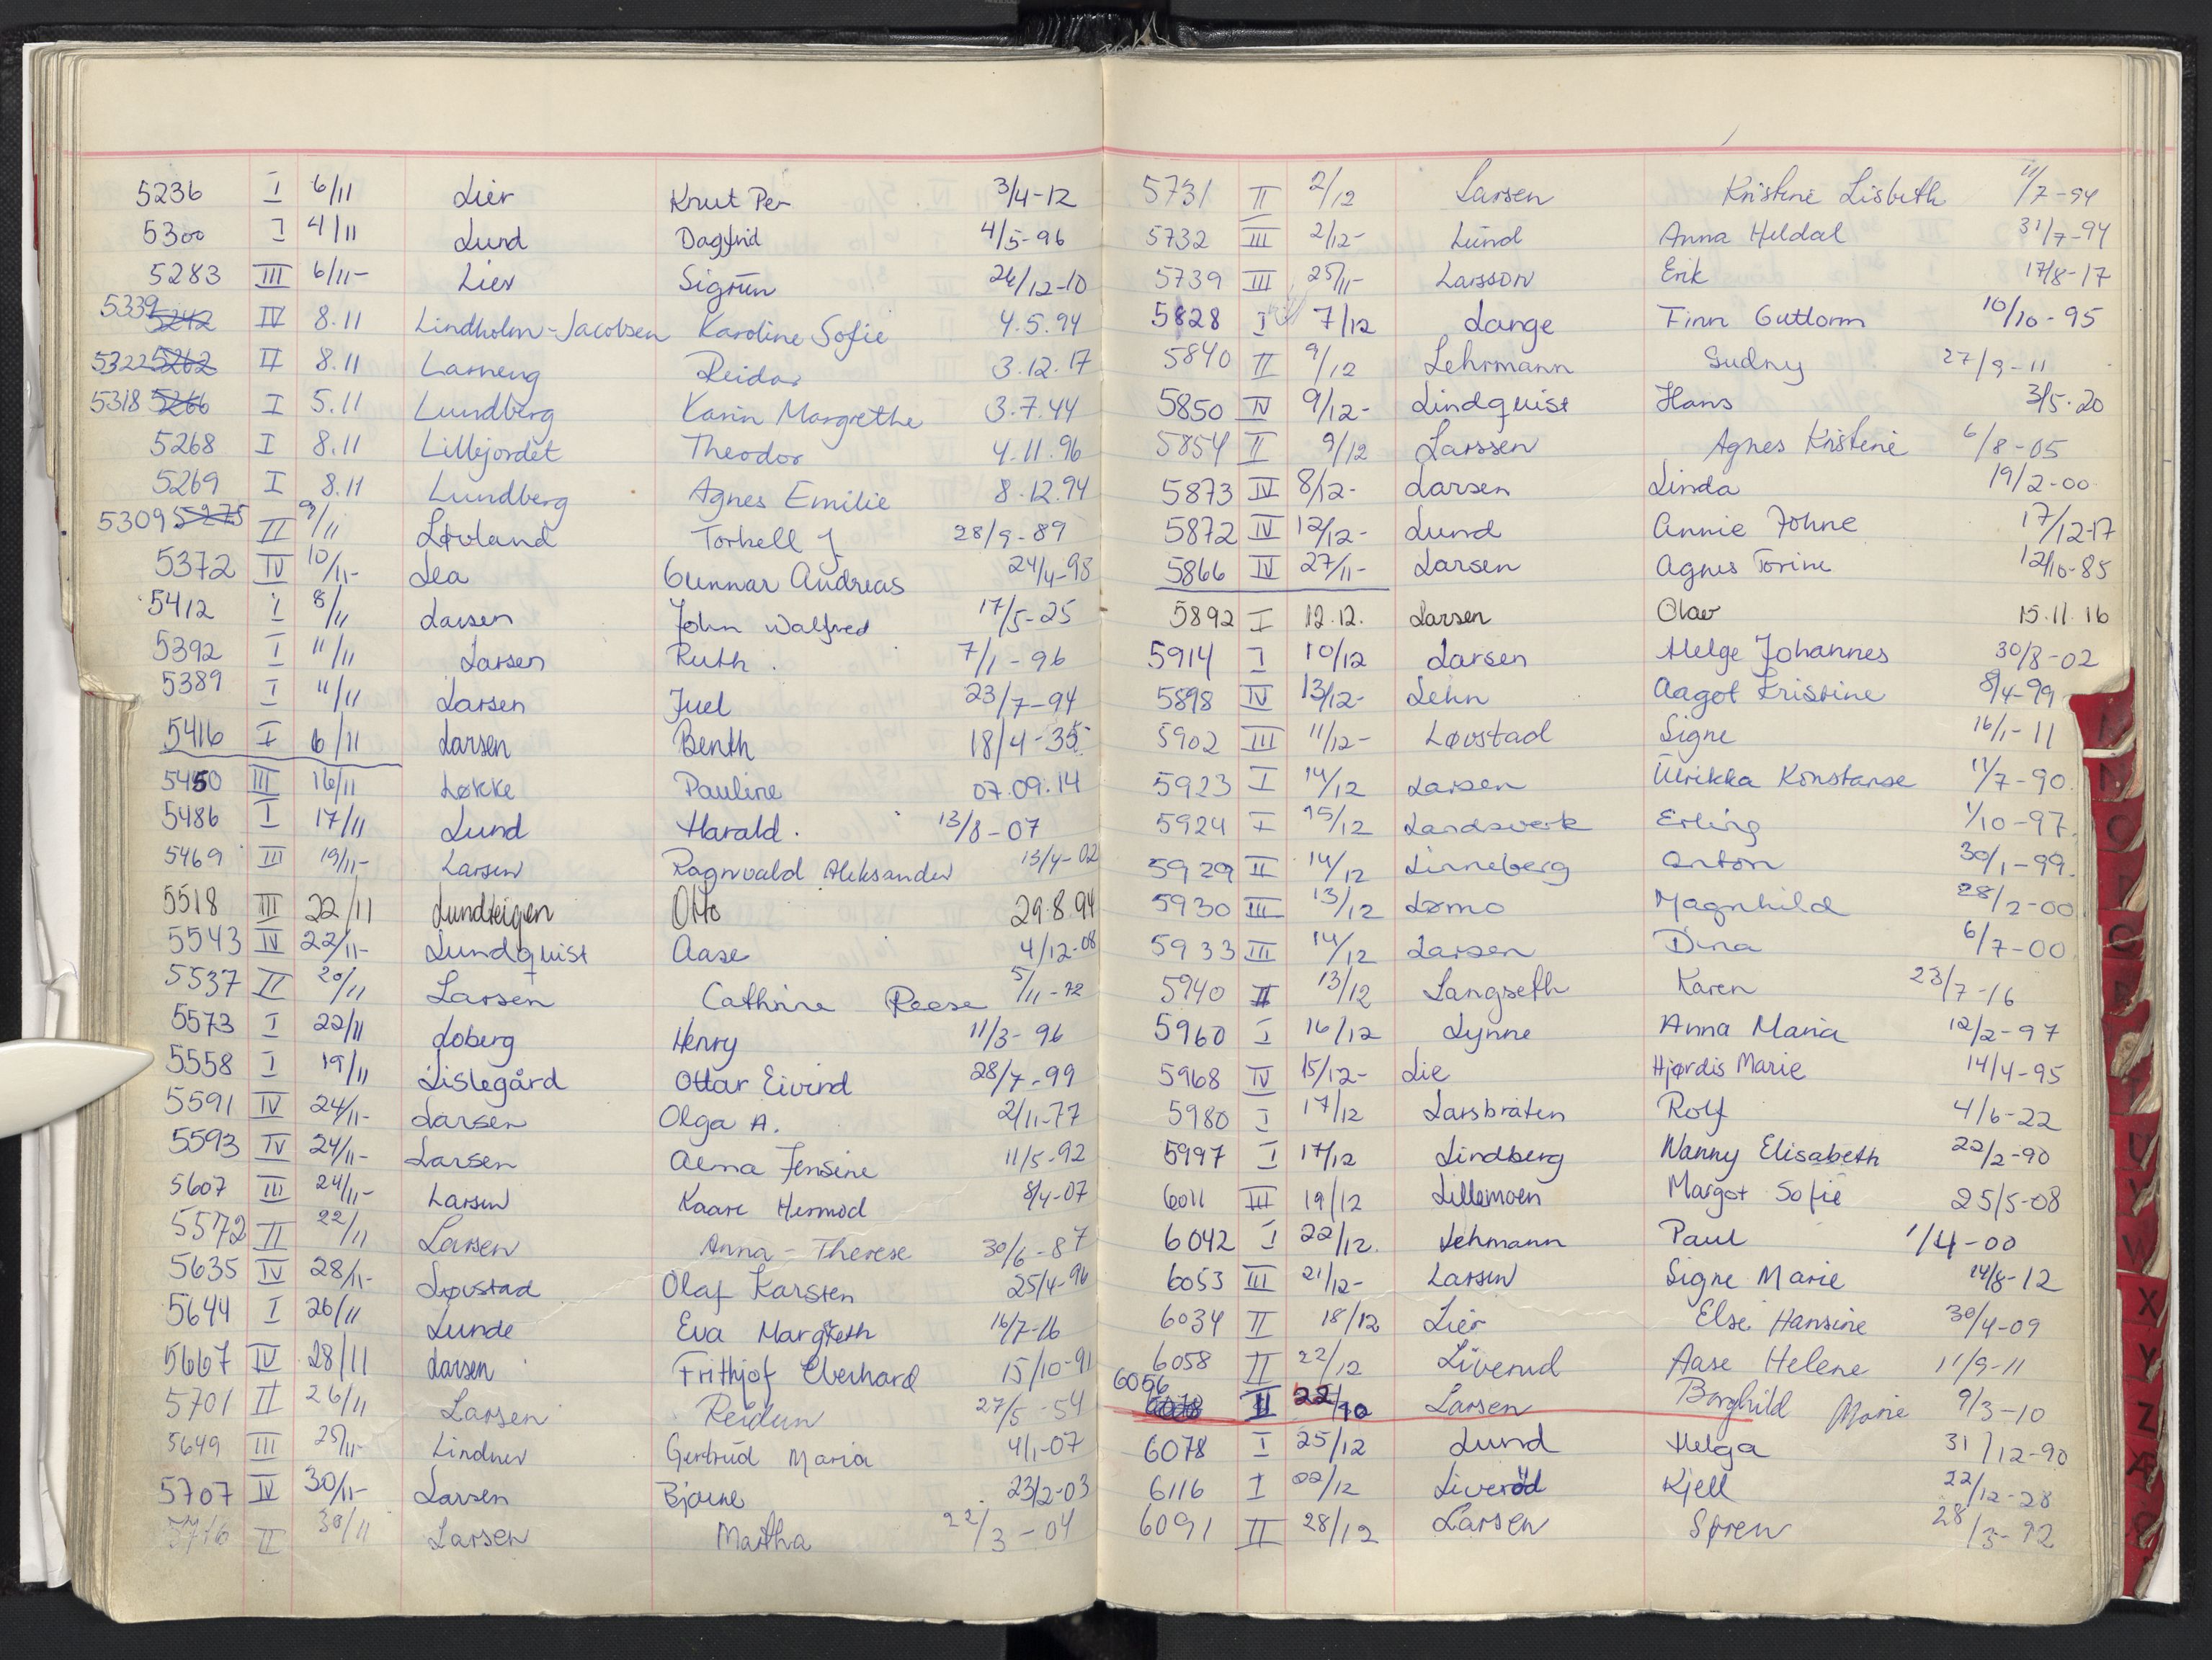 5236 I 6/11 Lier Knut Per 3/4-12
5300 I 4/11 Lund Dagfrid 4/5-96
5283 III 6/11- Lier Sigrun 26/12-10
5339 5242 IV 8.11 Lindholm-Jacobsen Karoline Sofie 4.5.94
5322 5262 II 8.11 Larneng Reidar 3.12.17
5318 5266 I 5.11 Lundberg Karin Margrethe 3.7.44
5268 I 8.11 Lillejordet Theodor 4.11.96
5269 I 8.11 Lundberg Agnes Emilie 8.12.94
5309 5275 II 9/11 Løvland Torkell J 28/9-89
5372 IV 10/11- Lea Gunnar Andreas 24/4-98
5412 I 8/11 Larsen John Walfred 17/5-25
5392 I 11/11 Larsen Ruth. 7/1-96
5389 I 11/11 Larsen Juel 23/7-94
5416 I 6/11 Larsen Benth 18/4-35
5450 III 16/11 Løkke Pauline 07.09.14
5486 I 17/11 Lund Harald. 13/8-07
5469 III 19/11- Larsen Ragnvald Aleksander 13/4-02
5518 III 22/11 Lundteigen Otto 29.8.94
5543 IV 22/11- Lundquist Aase 4/12-08
5537 II 20/11 Larsen Cathrine 5/11-22
5573 I 22/11 Loberg Henry 11/3-96
5558 I 19/11 Lislegård Ottar Eivind 28/7-99
5591 IV 24/11- Larsen Olga A. 2/11-77
5593 IV 24/11- Larsen Alma Jensine 11/5-92
5607 III 24/11- Larsen Kaare Hermod 8/4-07
5572 II 22/11 Larsen Anna-Therese 30/6-87
5635 IV 28/11- Løvstad Olaf Karsten 25/4-96
5644 I 26/11 Lunde Eva Margreth 16/7-16
5667 IV 28/11 Larsen Frithjof Eberhard 15/10-91
5701 II 26/11 Larsen Reidun 27/5-54
5649 III 25/11- Lindner Gertrud Maria 4/1-07
5707 IV 30/11- Larsen Bjarne 23/2-03
5716 II 30/11 Larsen Martha 22/3-04
5731 II 2/12 Larsen Kristine Lisbeth 11/7-94
5732 III 2/12- Lund Anna Heldal 31/7-94
5739 III 25/11- Larsson Erik 17/8-17
5828 I 7/12 Lange Finn Guttorm 10/10-95
5840 II 9/12 Lehrmann Gudny 27/9-11
5850 IV 9/12- Lindquist Hans 3/5.20
5854 II 9/12 Larssen Agnes Kristine 6/8-05
5873 IV 8/12- Larsen Linda 19/2-00
5872 IV 12/12- Lund Annie Johne 17/12-17
5866 IV 27/11- Larsen Agnes Torine 12/10-85
5892 I 12.12. Larsen Olav 15.11.16
5914 I 10/12 Larsen Helge Johannes 30/8-02
5898 IV 13/12- Lehn Aagot Kristine 8/4-99
5902 III 11/12- Løvstad Signe 16/1-11
5923 I 14/12 Larsen Ulrikka Konstanse 11/7-90
5924 I 15/12 Landsverk Erling 1/10-97
5929 II 14/12 Linneberg Anton 30/1-99.
5930 III 13/12 Lømo Magnhild 28/2-00
5933 III 14/12 Larsen Dina 6/7-00
5940 II 13/12 Langseth Karen 23/7-16
5960 I 16/12 Lynne Anna Maria 12/2-97
5968 IV 15/12- Lie Hjørdis Marie 14/4-95
5980 I 17/12 Larsbråten Rolf 4/6-22
5997 I 17/12 Lindberg Nanny Elisabeth 22/2-90
6011 III 19/12 Lillemoen Margot Sofie 25/5-08
6042 I 22/12. Lehmann Paul 1/4-00
6053 III 21/12- Larsen Signe Marie 14/8-12
6034 II 18/12 Lier Else Hansine 30/4-09
6058 II 22/12 Liverud Aase Helene 11/9-11
6056 II 22/10 Larsen Borghild Marie 9/3-10
6078 I 25/12 Lund Helga 31/12-90
6116 I 22/12 Liverød Kjell 22/12-28
6091 II 28/12 Larsen Søren 28/3-92
N
X
Y
Z
Æ